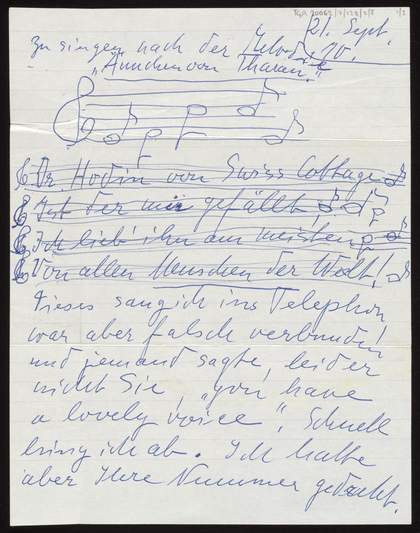 TGA 20062/
21. Sept. 70.
Zu singen nach der Melodie
„Ännchen von Tharau."
Dr. Hodin von Swiss Cottage
Ist der mir gefällt,
Ich lieb' ihn am meisten
Von allen Menschen der Welt!
Dieses sang ich ins Telephon,
war aber falsch verbunden
und jemand sagte, leider
nicht Sie, „you have
a lovely voice". Schnell
hing ich ab. Ich hatte
aber Ihre Nummer gedreht.